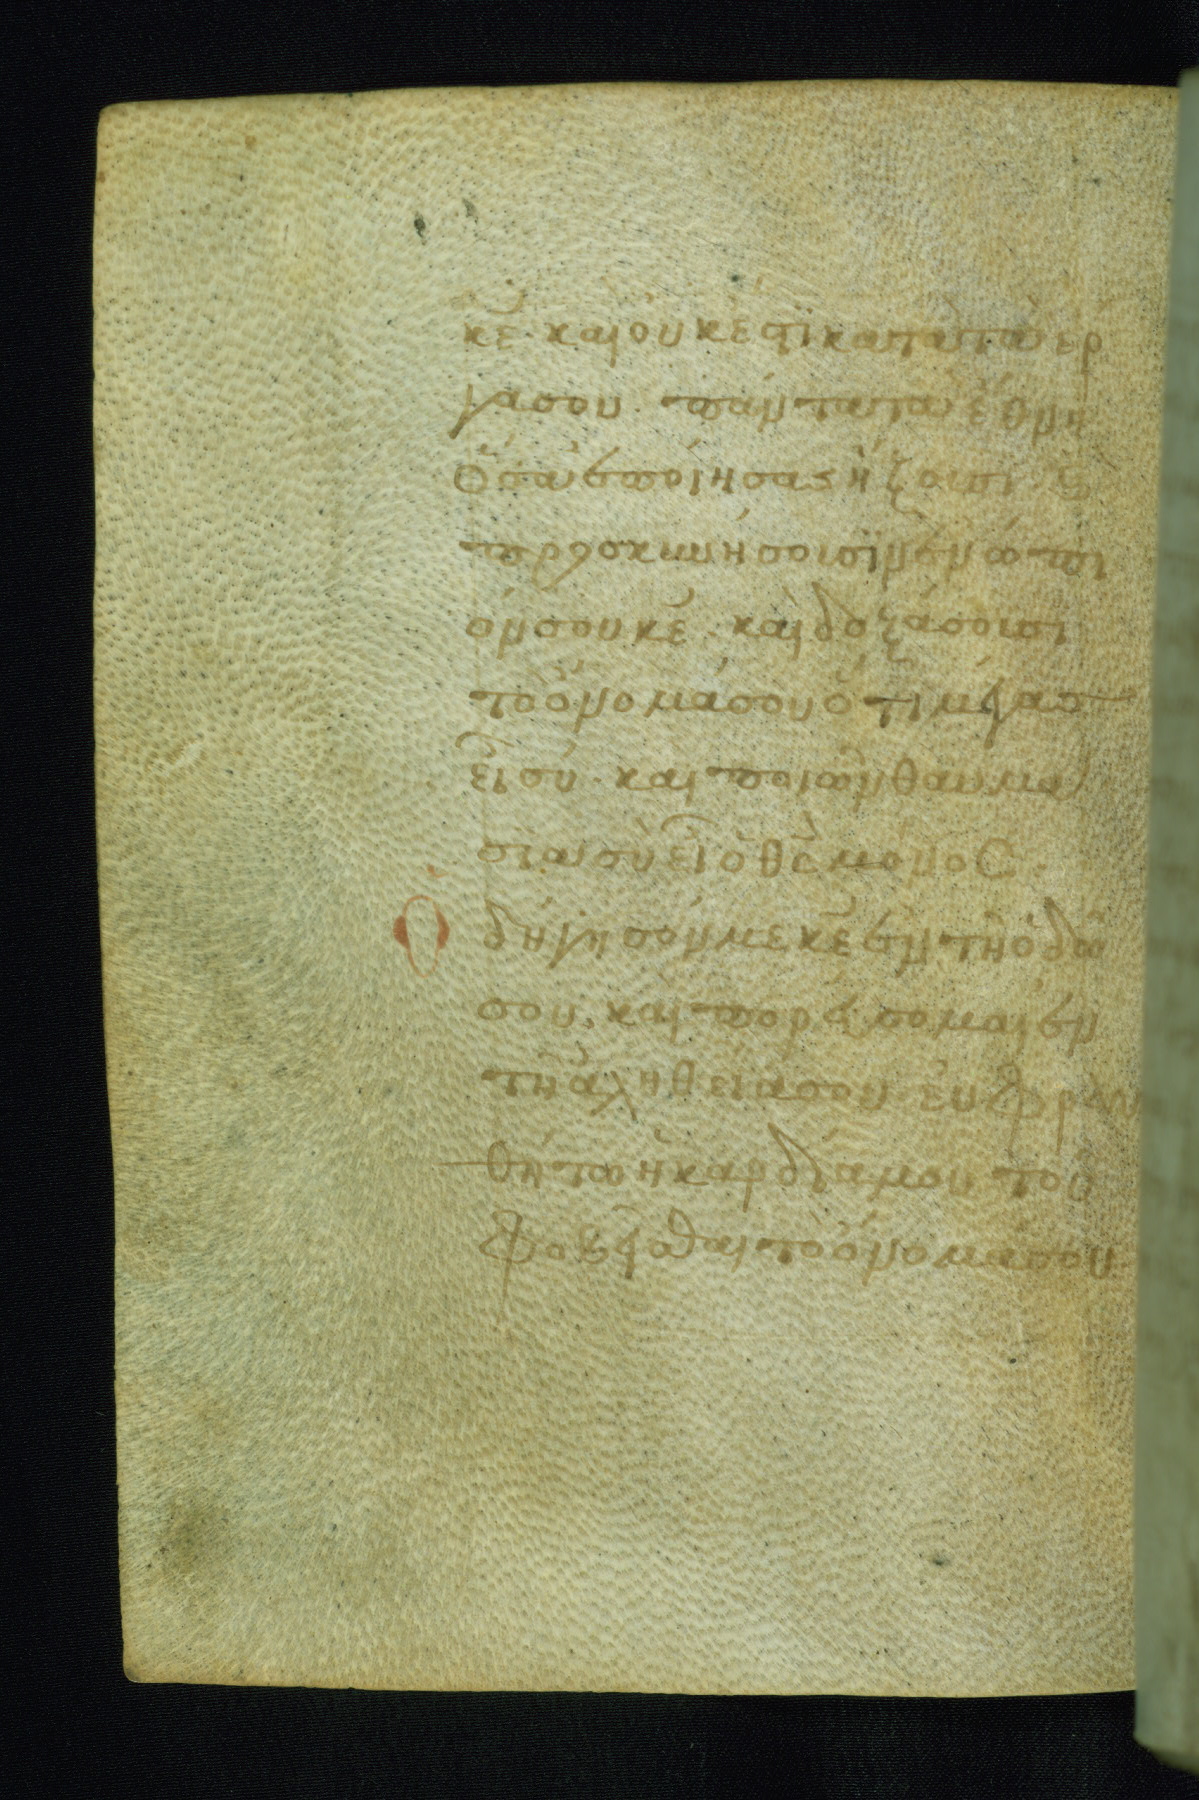 κε̅ καὶ οὐκ ἔστι κατὰ τὰ ἔρ
γα σου· πάντα τὰ ἔθνη
ὅσα ἐποίησας ἥξουσι· καὶ
προσκυνήσουσιν ἐνώπι
όν σου κε̅· καὶ δοξάσουσι
τὸ ὄνομά σου ὅτι μέγας
εἶ σύ· καὶ ποιῶν θαυμάσια
σὺ εἶ ὁ θς̅ μόνος·
Ὁδήγησόν με κε̅ ἐν τῆ ὁδῶ
σου, καὶ πορεύσομαι ἐν
τῆ ἀληθεία σου· εὐφραν
θήτω ἡ καρδία μου τοῦ
φοβεῖσθαι τὸ ὄνομά σου·